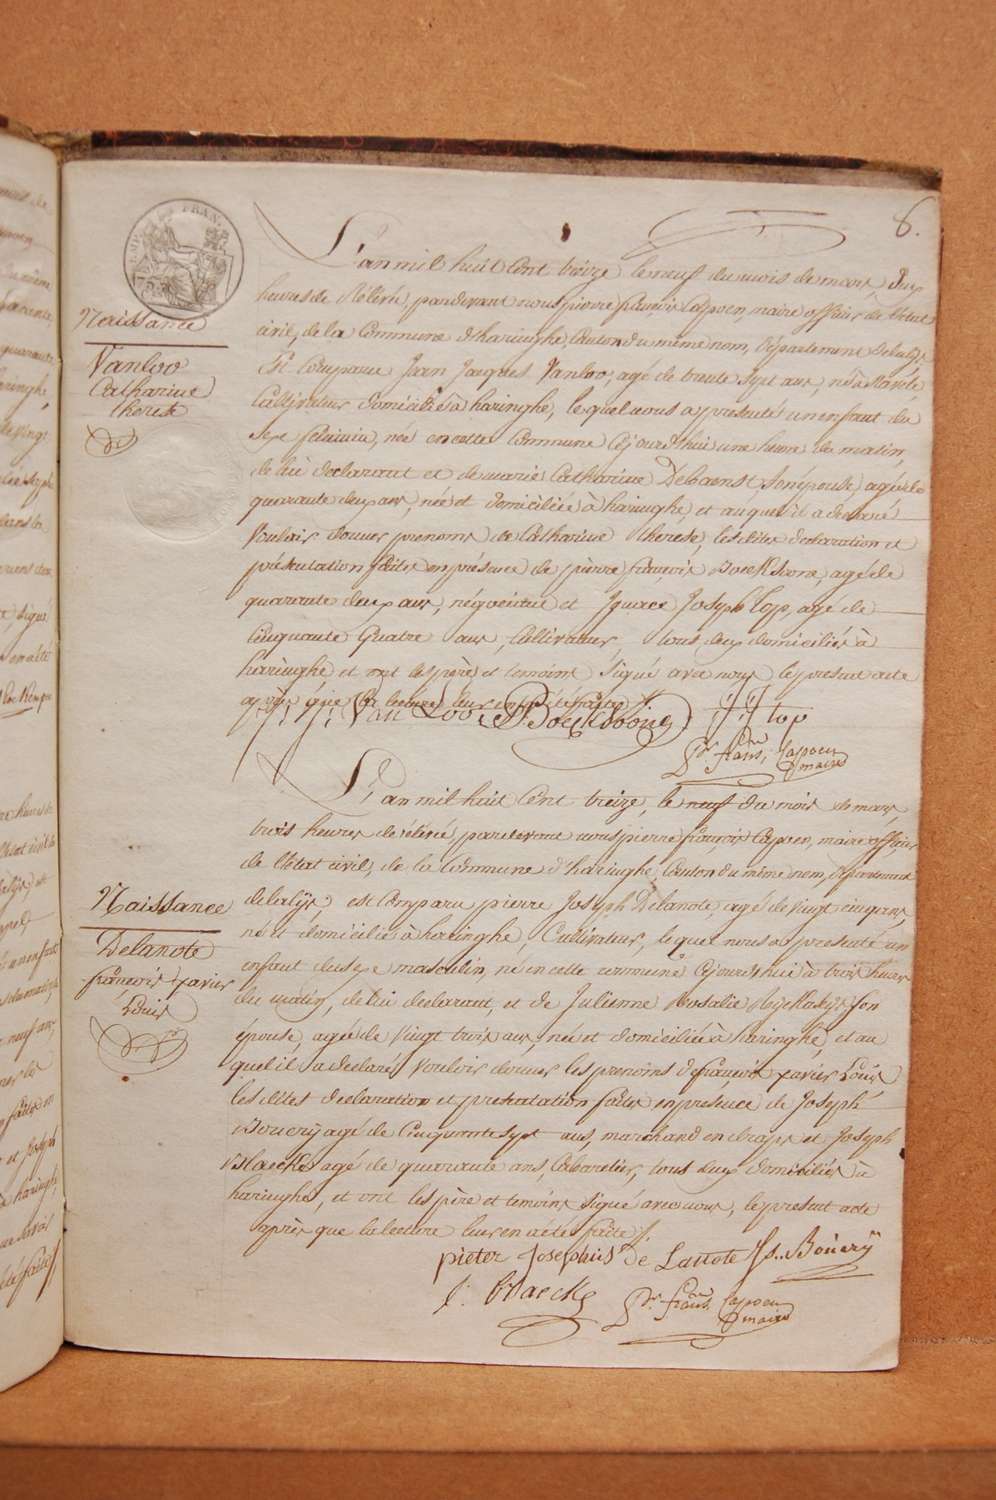 8.
EMPIRE FRAN.
Naissance
Vanloo
Catharine
therese
L'an mil huit Cent treize le neuf du mois de mars, Deux
heures de Rélévé, pardevant nous pierre françois Capoen, maire officier de l'état
civil, de la Commune d'haringhe, Canton du même nom, Département Delalÿs
Est Comparu Jean Jacques Vanloo, agé de trente Sept ans, né à
Cultivateur domicilié à haringhe, lequel nous a presenté un enfant du
Sexe feminin, née en cette Commune Cejourd'hui une heure du matin,
de lui declarant et de marie Catharine Debaenst Son épouse, agée de
quarante deux ans, née et domiciliée à haringhe, et auquel il a declaré
Vouloir donner prenoms de Catharine therese, les dites declaration et
présentation faites en présence de pierre françois agé de
quarante deux ans, négociant et Ignace Joseph Top, agé de
Cinquante Quatre ans, Cultivateur, tous deux domiciliés à
haringhe, et ont les père et temoins Signé avec nous le present acte
après que la lecture leur en a été faite /.
J: J: Van Loo P. J. top
Pr frans, Capoen
maire
Naissance
Delanote
françois xavier
Louis
L'an mil huit Cent treize, le neuf du mois de mars,
trois heures de rélévé, pardevant nous pierre françois Capoen, maire officier
de l'état civil, de la Commune d'haringhe, Canton du même nom, département
delalÿs, est Comparu pierre Joseph Delanote, agé de vingt cinq ans,
né et domicilié à haringhe, Cultivateur, lequel nous a presenté un
enfant du sexe masculin, né en cette commune Cejourd'hui à trois heures
du matin, de lui declarant, et de Julienne Rosalie Son
épouse, agée de Vingt trois ans, née et domiciliée à haringhe, et au
quel il a declaré Vouloir donner les prenoms de françois xavier Louis
les dites declaration et presentation faites en presence de Joseph
Bouerÿ agé de Cinquante Sept ans, marchand en draps et Joseph
Braecke agé de quarante ans, Cabaretier, tous deux domiciliés à
haringhe, et ont les père et temoins Signé avec nous, le present acte
après que la lecture leur en a été faite /.
pieter Josephus de Lanote Js.. Bouerÿ
J: Braecke Pr. frans, Capoen
maire